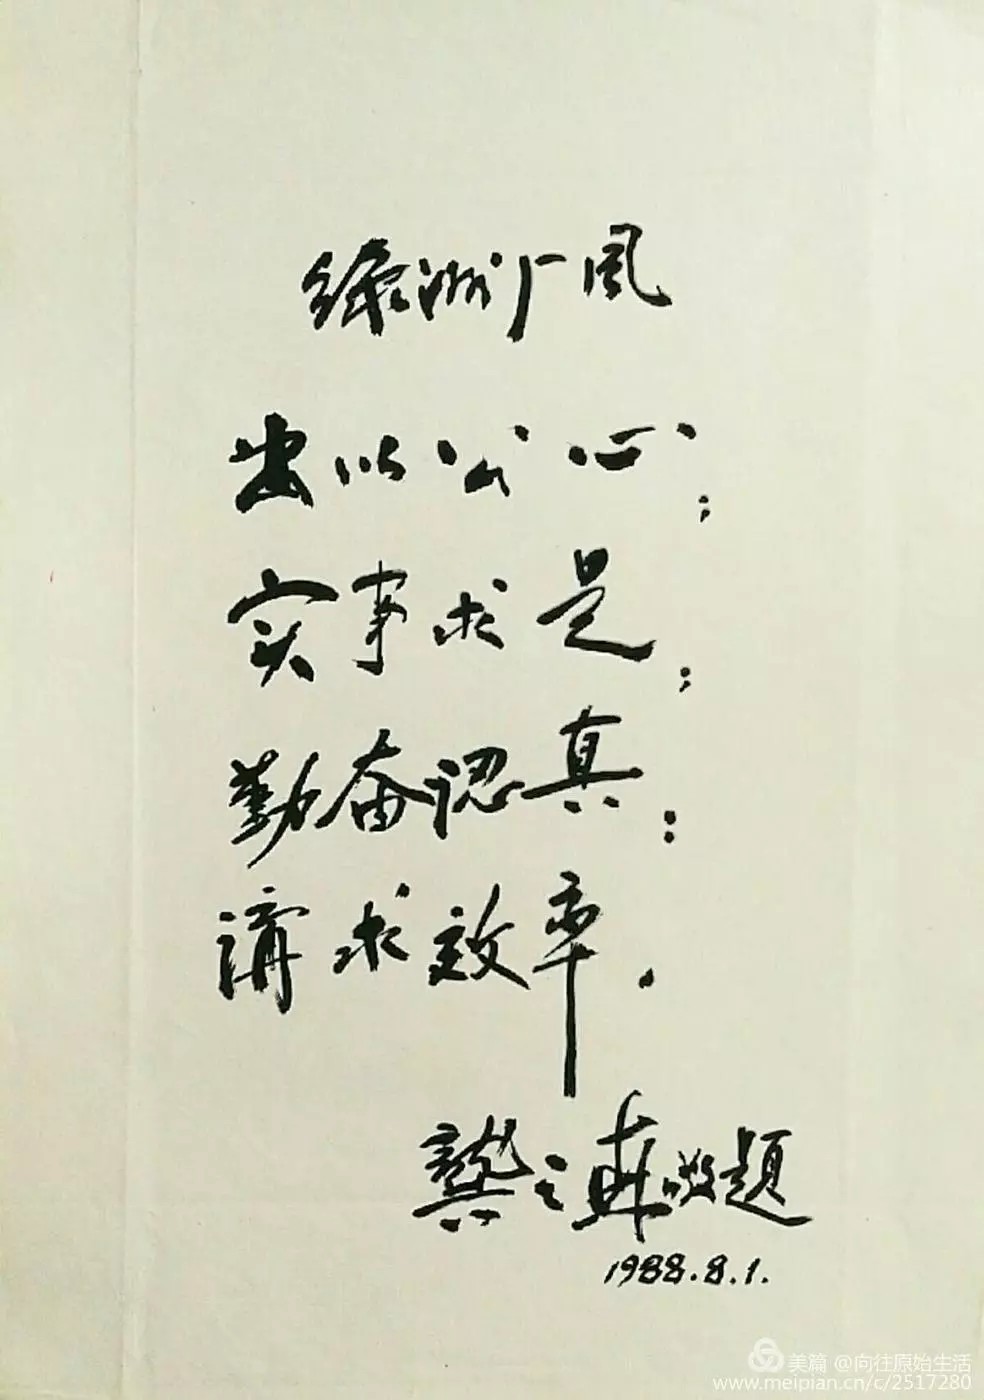 绿洲厂风
出以公心；
实事求是；
勤奋認真；
講求效率．
龚之 敬题
1988.8.1.
美篇 @向往原始生活
www.meipian.cn/c/2517280